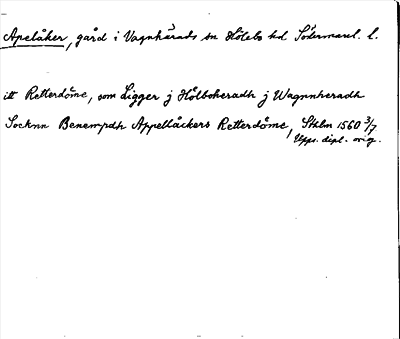 Apelåker, gård i Vagnhärads sn Hölebo hd Södermanl. l.
itt Retterdöme, som Ligger j Hölboheradh j Wagnnheradh
Socknn Benempdh Appellåckers Retterdöme, Sthlm 1560 3/7
Upps. dipl. orig.